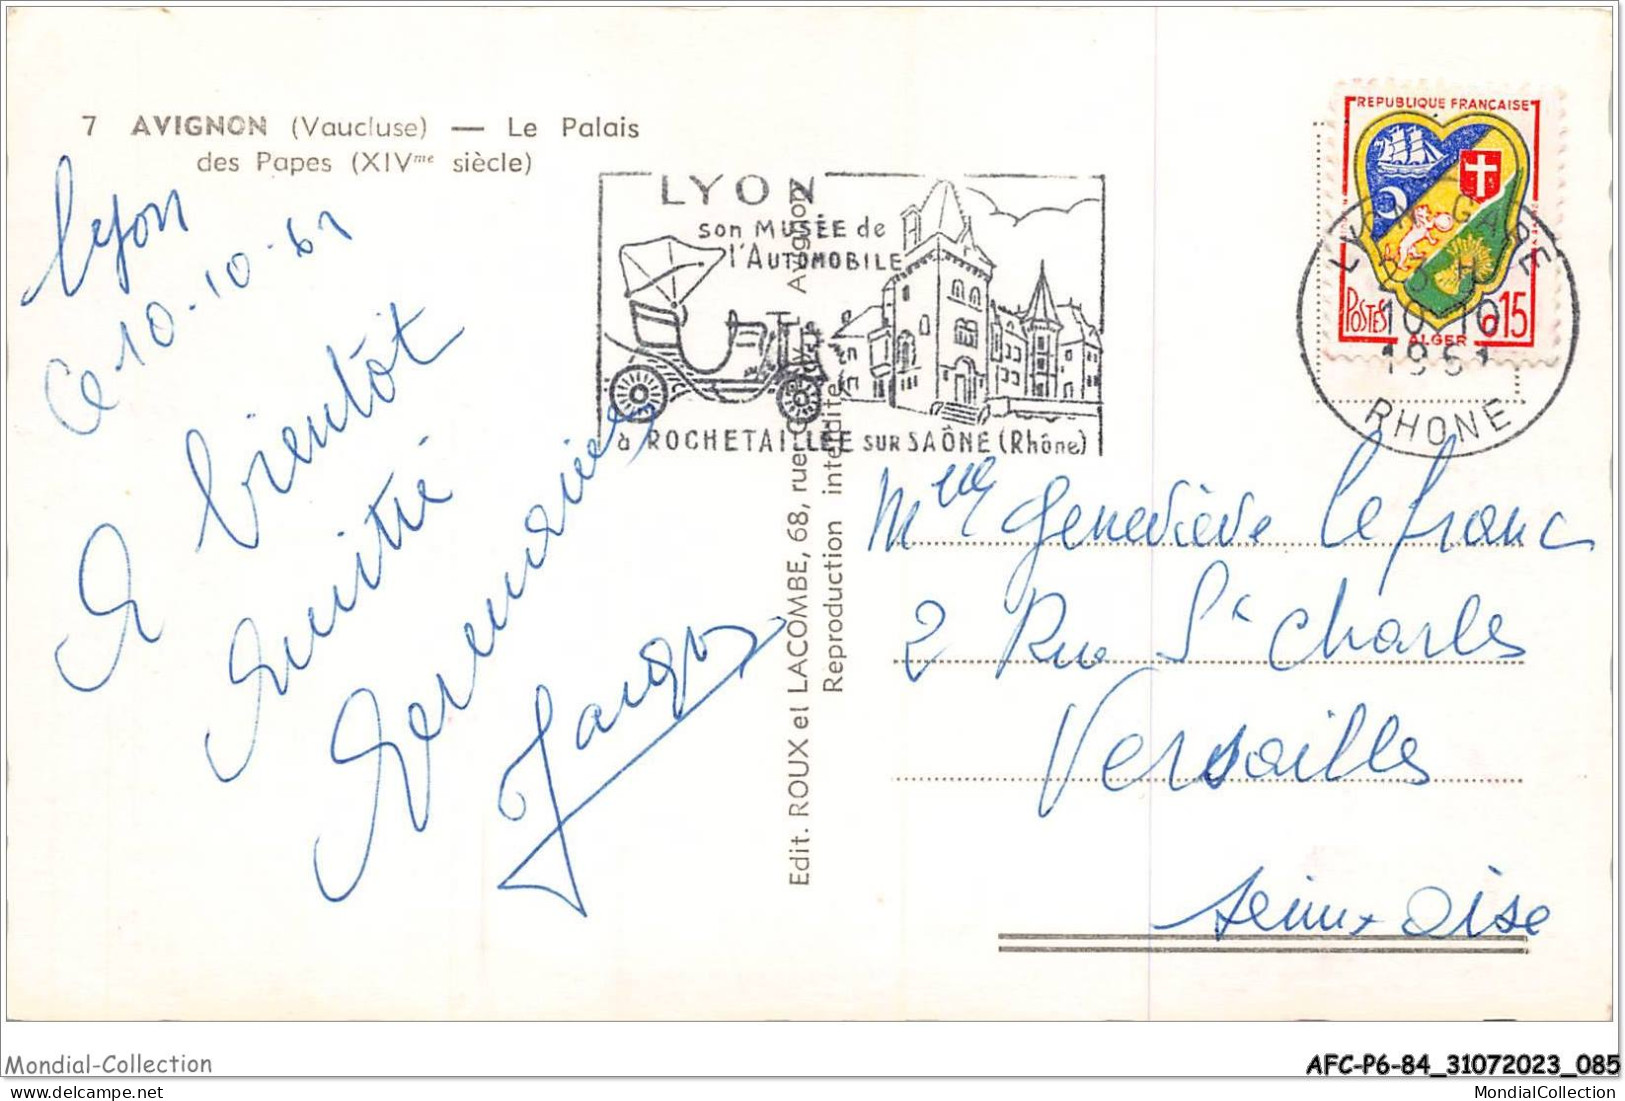 7 AVIGNON (Vaucluse) — Le Palais
des Papes (XIVme siècle)
Lyon
Ce 10-10-61
A bientôt
Amitié
Germaine
Jacques
LYON
son MUSÉE de
l'AUTOMOBILE
à ROCHETAILLÉE SUR SAÔNE (Rhône)
Edit. ROUX et LACOMBE, 68, rue Avignon
Reproduction interdite
REPUBLIQUE FRANÇAISE
POSTES
0,15
ALGER
LYON GARE
23 H
10-10
1961
RHONE
Mlle Geneviève Lefranc
2 Rue St Charles
Versailles
Seine x Oise
Mondial-Collection
AFC-P6-84_31072023_085
MondialCollection